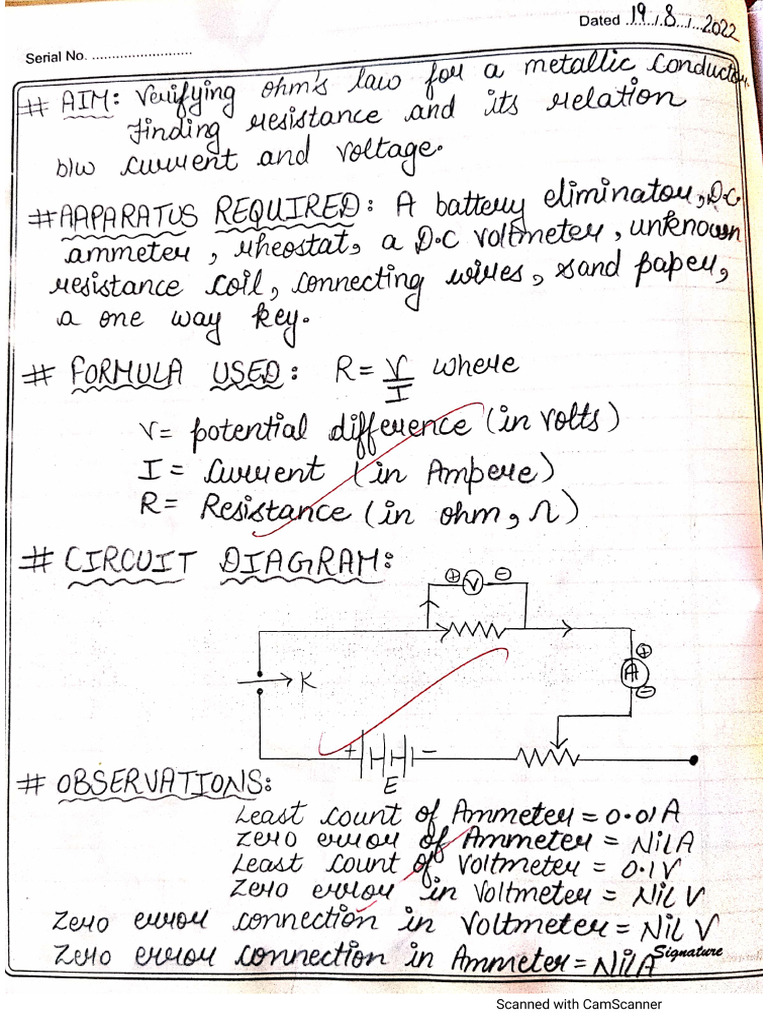 Dated 19/8/2022
Serial No. ..........................
# AIM: Verifying ohm's law for a metallic conductor
Finding resistance and its relation
b/w current and voltage.
# AAPARATUS REQUIRED: A battery eliminator, D.C
ammeter, rheostat, a D.C voltmeter, unknown
resistance coil, connecting wires, sand paper,
a one way key.
# FORMULA USED: R = V/I where
V = potential difference (in volts)
I = Current (in Ampere)
R = Resistance (in ohm, Ω)
# CIRCUIT DIAGRAM:
+ V -
+
K
A
-
+ -
E
# OBSERVATIONS:
Least count of Ammeter = 0.01A
Zero error of Ammeter = Nil A
Least count of Voltmeter = 0.1V
Zero error in Voltmeter = Nil V
Zero error connection in Voltmeter = Nil V
Zero error connection in Ammeter = Nil A
Signature
Scanned with CamScanner